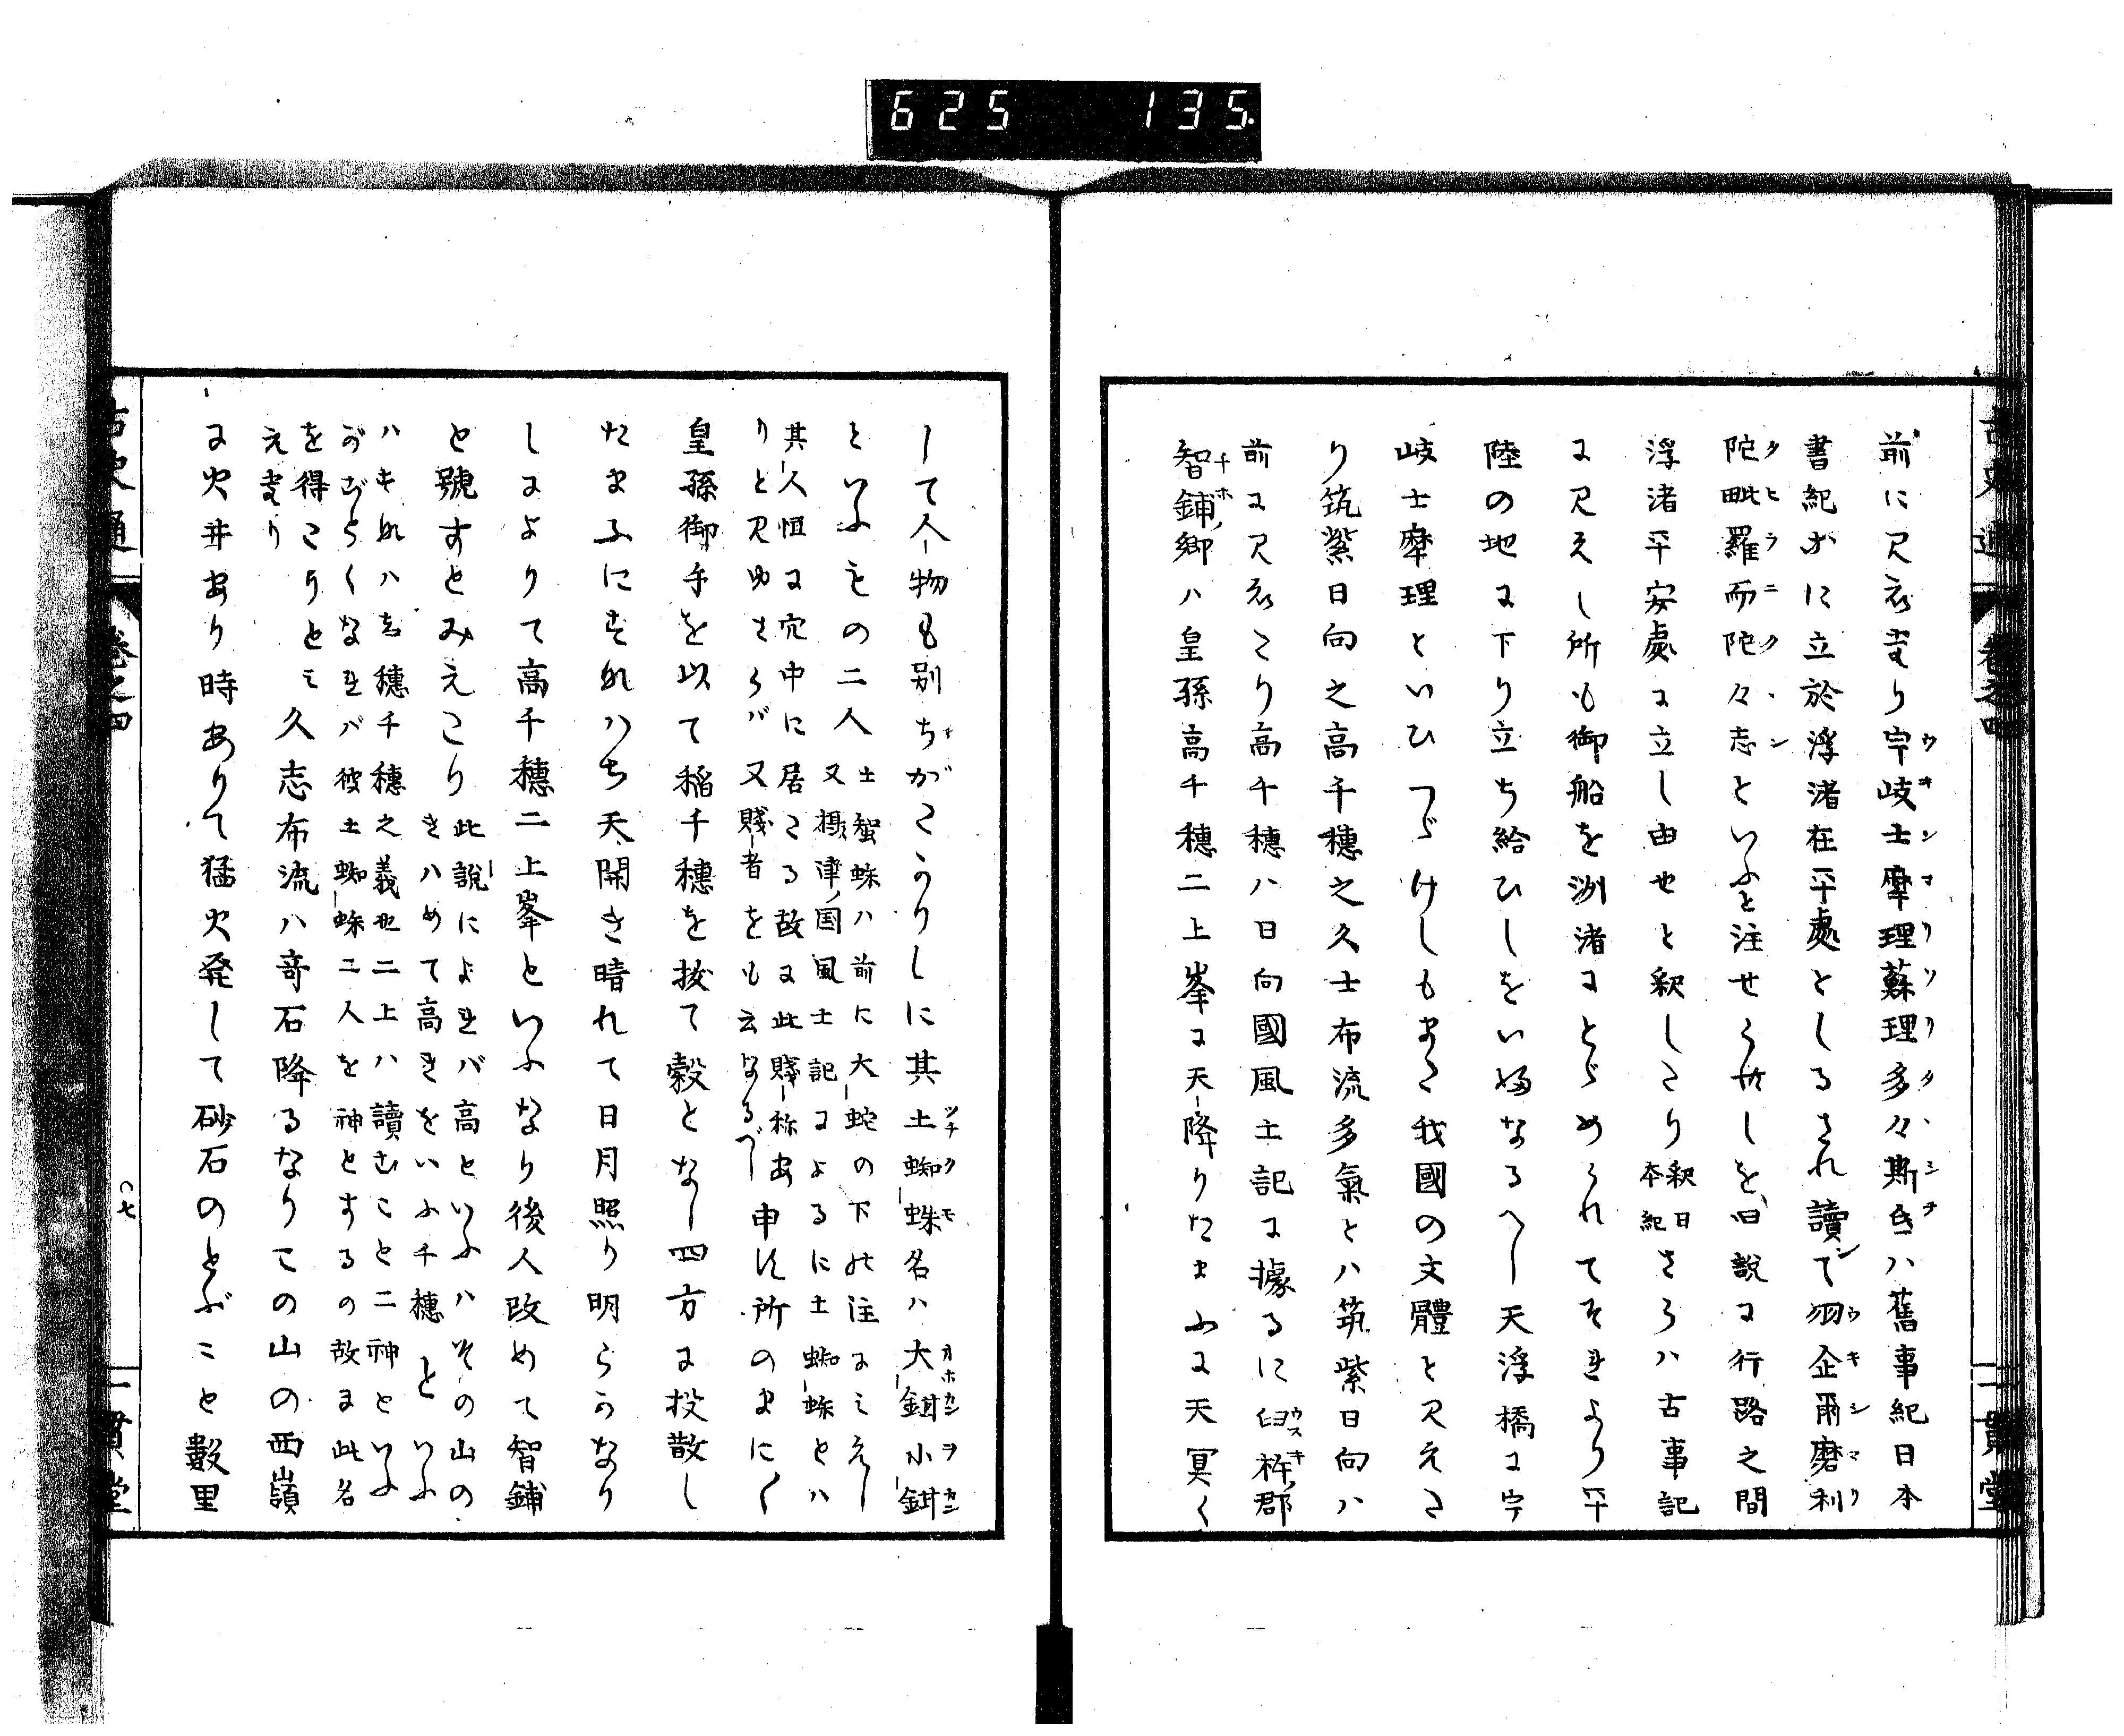 625 135
前に見えたり宇岐士摩理蘇理多々斯弖ハ舊事紀日本
書紀等に立於浮渚在平處としるされ讀て羽企爾磨利
陀毗羅而陀々志といふと注せられしを旧説に行路之間
浮渚平安處に立し由也と釈したり釈日本紀さらハ古事記
に見えし所も御船を洲渚にとゞめられてそれより平
陸の地に下り立ち給ひしをいふなるへし天浮橋に宇
岐士摩理といひつゞけしもまた我國の文體と見えた
り筑紫日向之高千穗之久士布流多氣とハ筑紫日向ハ
前に見えたり高千穗ハ日向國風土記に據るに臼杵ノ郡
智鋪ノ郷ハ皇孫高千穗二上峯に天降りたまふに天冥く
して人物も別ちがたかりしに其土蜘蛛名ハ大鉗小鉗
といふもの二人土蜘蛛ハ前に大蛇の下の注にみえし
又摂津ノ国風土記によるに土蜘蛛とハ
其人恒に穴中に居たる故に此賤称あ
りと見ゆさらバ又賤者をも云なるべし申す所のまに〱
皇孫御手を以て稲千穗を拔て穀となし四方に投散し
たまふにすなハち天開き晴れて日月照り明らかなり
しによりて高千穗二上峯といふなり後人改めて智鋪
と號すとみえたり此説によれバ高といふハその山の
きハめて高きをいふ千穗といふ
ハすなハち穗千穗之義也二上ハ讀むこと二神といふ
がごとくなれバ彼土蜘蛛二人を神とするの故に此名
を得たりとみえたり久志布流ハ奇石降るなりこの山の西嶺
に火井あり時ありて猛火発して砂石のとぶこと數里
古史通 卷之四
〇七
一貫堂